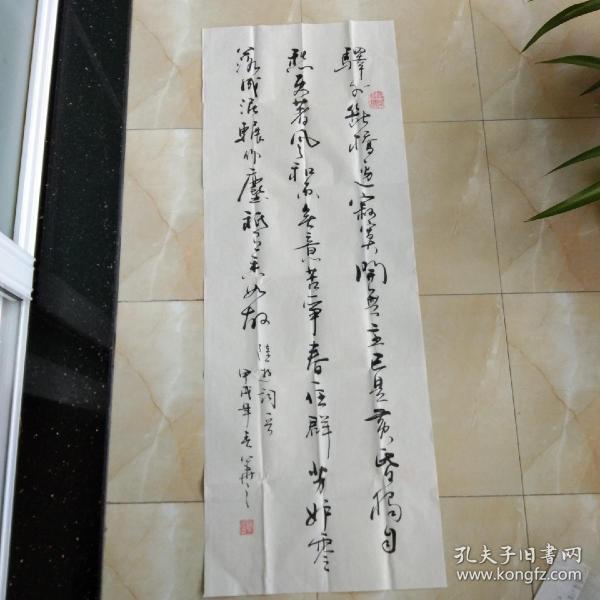 驛外斷橋邊寂寞開無主已是黃昏獨自
愁更著風和雨無意苦爭春一任群芳妒零
落成泥輾作塵祗有香如故
陸游詞一首
甲戌年
孔夫子旧书网
www.kongfz.com